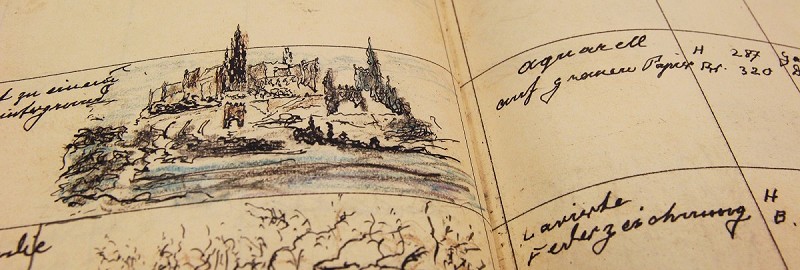 zu einem
Aquarell
auf grauem Papier
H 287
Br. 320
Lavierte
Federzeichnung
H
B.